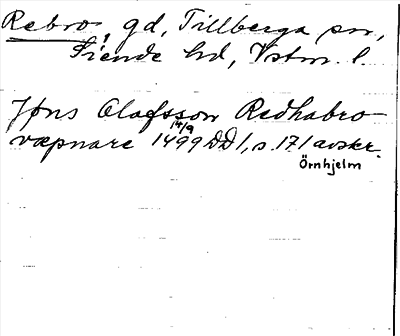 Rebro, gd, Tillberga sn,
Siende hd, Vstm. l.
Jöns Olafsson Redhabro
væpnare 14/9 1499 DD 1, s. 171 avskr.
Örnhjelm